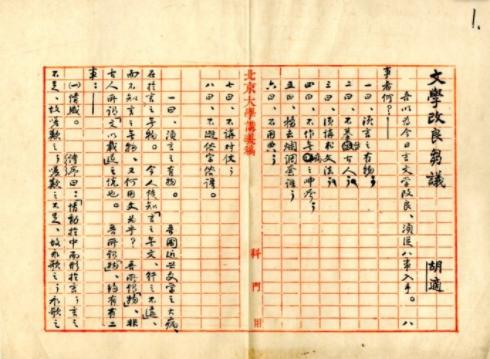 1.
文學改良芻議 胡適
吾以為今日言文學改良,須從八事入手。八
事者何?——
一曰,須言之有物。
二曰,不摹仿古人。
三曰,須講求文法。
四曰,不作無病之呻吟。
五曰,務去爛調套語。
六曰,不用典。
北京大學講義稿 科 門 用
七曰,不講對仗。
八曰,不避俗字俗語。
一曰,須言之有物。 吾國近世文學之大病,
在於言之無物。今人徒知「言之無文,行之不遠」,
而不知言之無物,又何用文為乎?吾所謂「物」,非
古人所謂「文以載道」之說也。吾所謂「物」,約有二
事:——
(一)情感。 詩序曰:「情動於中而形於言。言之
不足,故嗟歎之。嗟歎之不足,故永歌之。永歌之